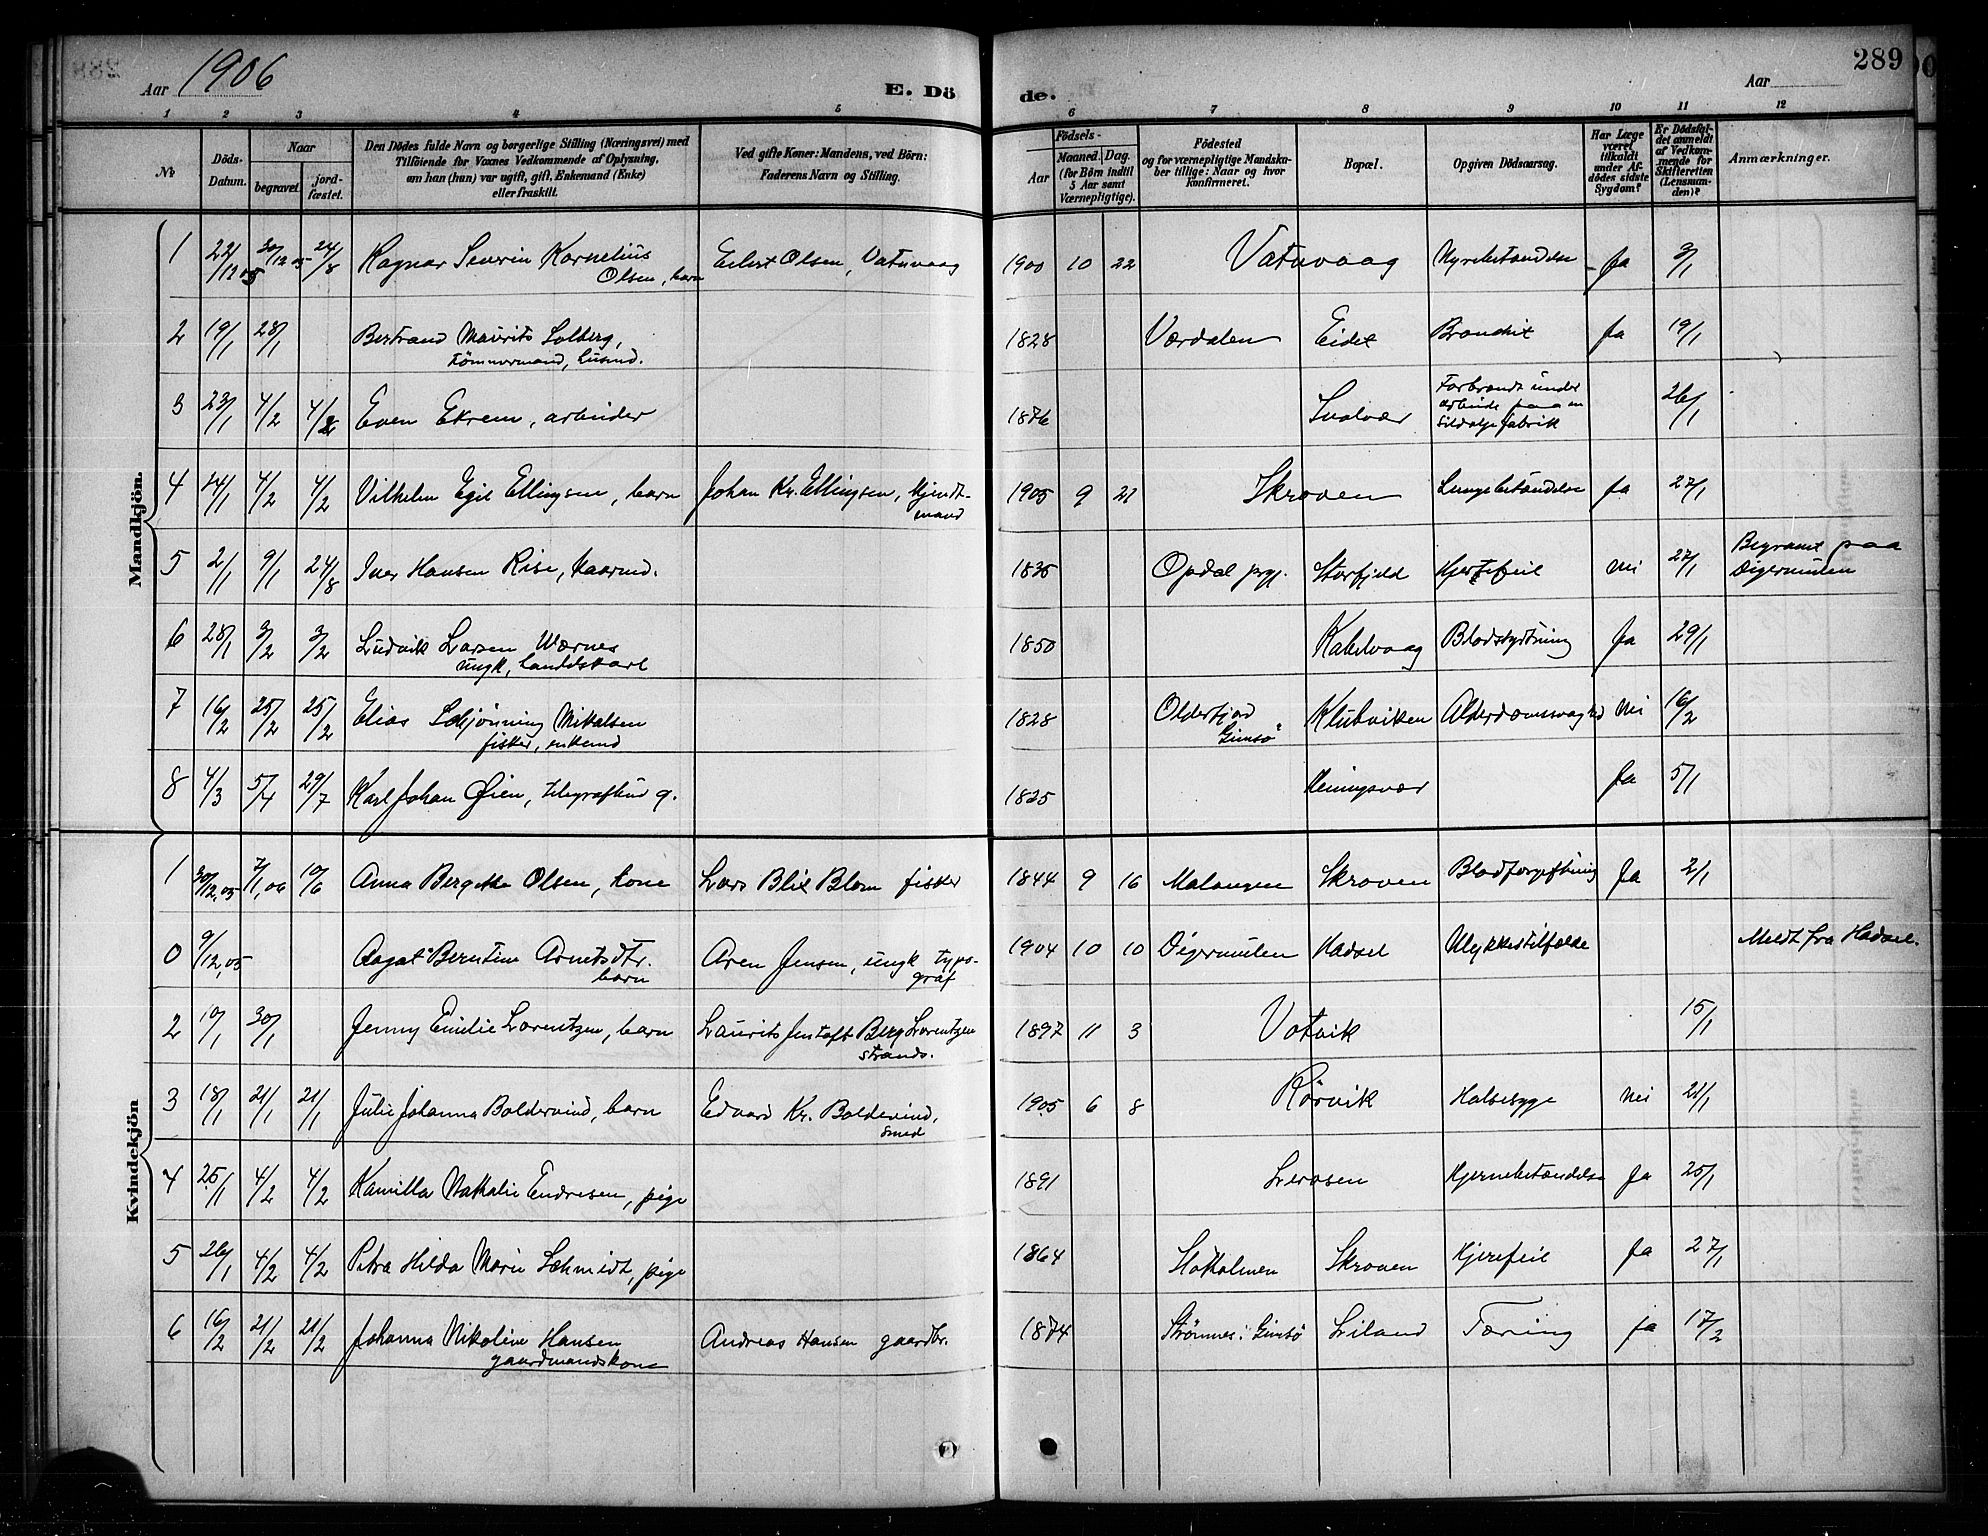 289
Aar 1906
E. Dö
de.
Aar
1 2 3 4 5 6 7 8 9 10 11 12
№
Döds-Datum.
Naar
begravet.
jord-fæstet.
Den Dödes fulde Navn og borgerlige Stilling (Næringsvei) med
Tilföiende for Voxnes Vedkommende af Oplysning,
om han (hun) var ugift, gift, Enkemand (Enke)
eller fraskilt.
Ved gifte Koner: Mandens, ved Börn:
Faderens Navn og Stilling.
Födsels-
Aar
Maaned. Dag.
(for Börn indtil
5 Aar samt
Værnepligtige).
Födested
og for værnepligtige Mandska-
ber tillige: Naar og hvor
konfirmeret.
Bopæl.
Opgiven Dödsaarsag.
Har Læge
været
tilkaldt
under Af-
dödes sidste
Sygdom?
Er Dödsfal-
det anmeldt
af Vedkom-
mende for
Skifteretten
(Lensman-
den)?
Anmærkninger.
Mandkjön.
1 22/12 05 30/12 05 24/8 Ragnar Severin Kornelius Eilert Olsen, Vatnvaag 1900 10 22 Vatnvaag Nyrebetændelse ja 3/1
Olsen, barn
2 19/1 28/1 Bertrand Maurits Solberg, 1828 Værdalen Eidet Bronchit ja 19/1
tømmermand, husmd.
3 23/1 4/2 4/2 Even Ekrem, arbeider 1876 Svolvær Forbrændt under
arbeide paa en
sildoljefabrik 26/1
4 14/1 4/2 4/2 Vilhelm Egil Ellingsen, barn Johan Kr. Ellingsen, Hjendt-
mand 1905 9 21 Skroven Lungebetændelse ja 27/1
5 2/1 9/1 24/8 Iver Hansen Rise, kaarmd. 1835 Opdal prgj. Storfjeld Hjertefeil nei 27/1 Begravet paa
Digermulen
6 28/1 3/2 3/2 Ludvik Larsen Wærnes 1850 Kabelvaag Blodstyrtning ja 29/1
ungk, handelskarl
7 16/2 25/2 25/2 Elias Schjønning Mikalsen 1828 Olderfjord
Gimsø Klubviken Alderdomssvaghed nei 16/2
fisker, enkemd
8 4/3 5/4 29/7 Karl Johan Øien, telegrafbud g. 1825 Henningsvær ja 5/1
Kvindekjön
1 30/12,05 7/1,06 10/6 Anna Bergette Olsen, kone Lars Blix Blom fisker 1844 9 16 Malangen Skroven Blodforgiftning ja 2/1
0 9/12,05 Aagot Berntine Arntsdtr. Aren Jensen, ungk typo-
graf 1904 10 10 Digermulen Hadsel Ulykkestilfælde Meldt fra Hadsel.
barn
2 10/1 30/1 Jenny Emilie Lorentzen, barn Laurits Jentoft Berg Lorentzen
strands. 1897 11 3 Votvik 15/1
3 18/1 21/1 21/1 Julie Johanna Boldevind, barn Edvard Kr. Boldevind,
smed 1905 6 8 Rørvik Halsesyge nei 21/1
4 25/1 4/2 4/2 Kamilla Nathalie Endresen, pige 1891 Lerosen Hjernebetændelse ja 25/1
5 26/1 4/2 4/2 Petra Hilda Marie Schmidt, pige 1864 Stokholmen Skroven Hjertefeil ja 27/1
6 16/2 21/2 21/2 Johanna Nikoline Hansen Andreas Hansen gaardbr. 1874 Strømnes i Gimsø Liland Tæring ja 17/2
gaardmandskone